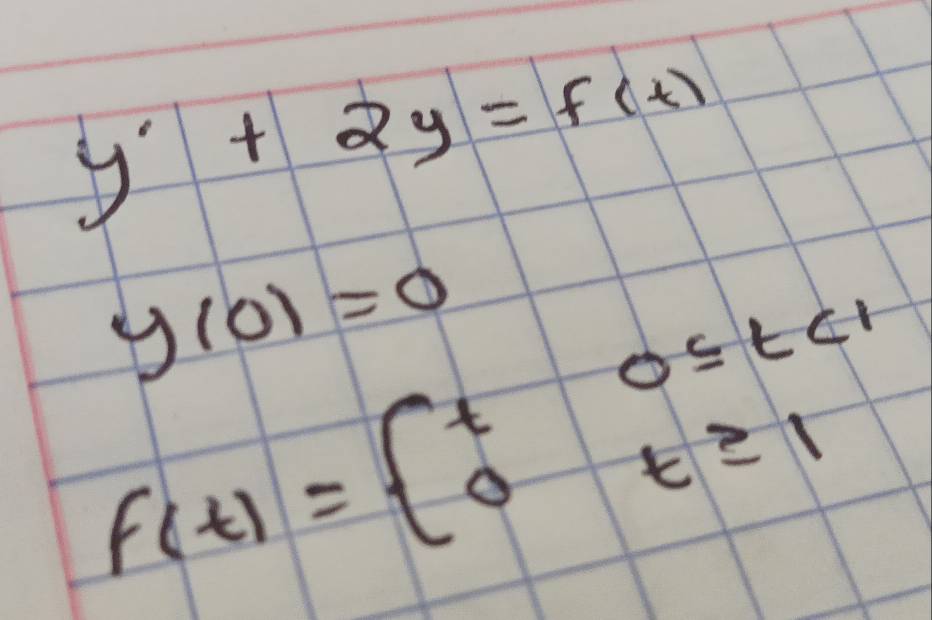 y' + 2y = f(t)
y(0) = 0
f(t) = { t 0 ≤ t < 1
0 t ≥ 1